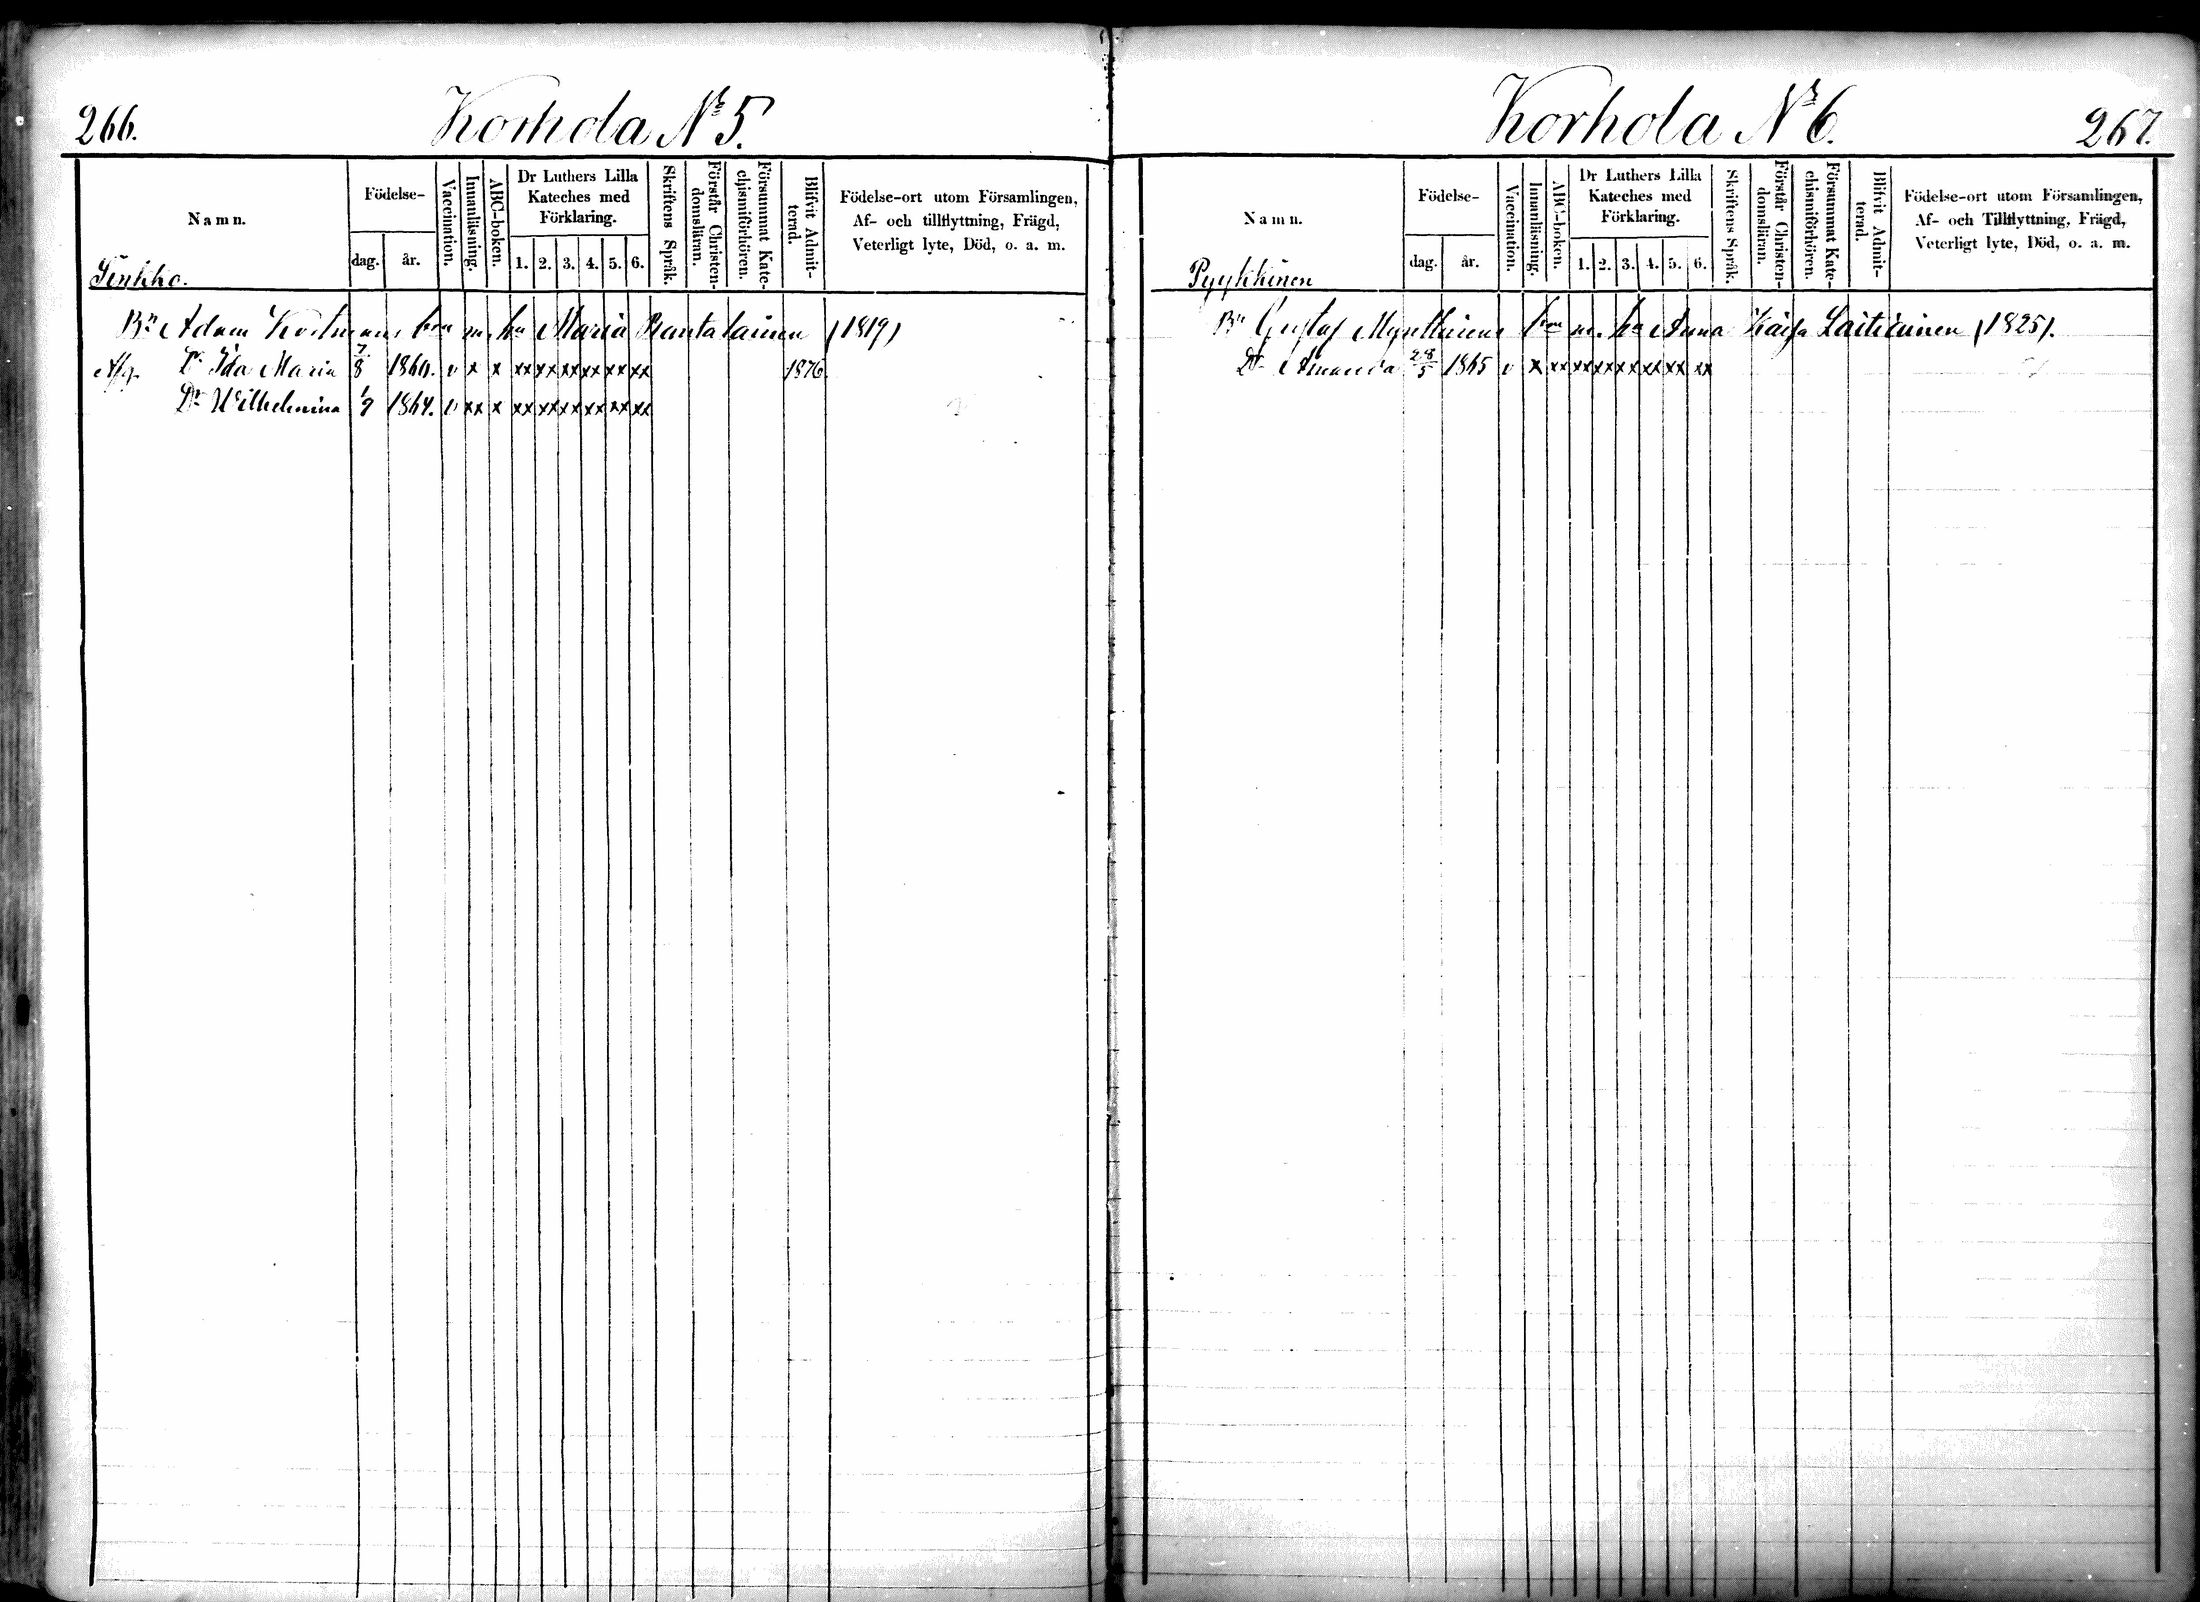 266.
Korhola Nr 5.
Namn.
Födelse-
dag.
år.
Vaccination.
Innanläsning.
ABC-boken.
Dr Luthers Lilla
Kateches med
Förklaring.
1. 2. 3. 4. 5. 6.
Skriftens Språk.
Förstår Christen-
domsläran.
Försummat Kate-
chismiförhören.
Blifvit Admit-
terad.
Födelse-ort utom Församlingen,
Af- och tillflyttning, Frägd,
Veterligt lyte, Död, o. a. m.
Sinkko.
Bn Adam m. hu Maria Rantalainen (1819)
Afg. Dr Ida Maria 7/8 1860. v x x xx xx xx xx xx xx 1876
Dr Wilhelmina 1/9 1864. v xx x xx xx xx xx xx xx
Korhola Nr 6.
267.
Namn.
Födelse-
dag.
år.
Vaccination.
Innanläsning.
ABC-boken.
Dr Luthers Lilla
Kateches med
Förklaring.
1. 2. 3. 4. 5. 6.
Skriftens Språk.
Förstår Christen-
domsläran.
Försummat Kate-
chismiförhören.
Blifvit Admit-
terad.
Födelse-ort utom Församlingen,
Af- och Tillflyttning, Frägd,
Veterligt lyte, Död, o. a. m.
Pyykkinen
Bn Gustaf m. hu Anna Kaisa Laitiainen (1825).
Dr Amanda 28/5 1865 v x xx xx xx xx xx xx xx